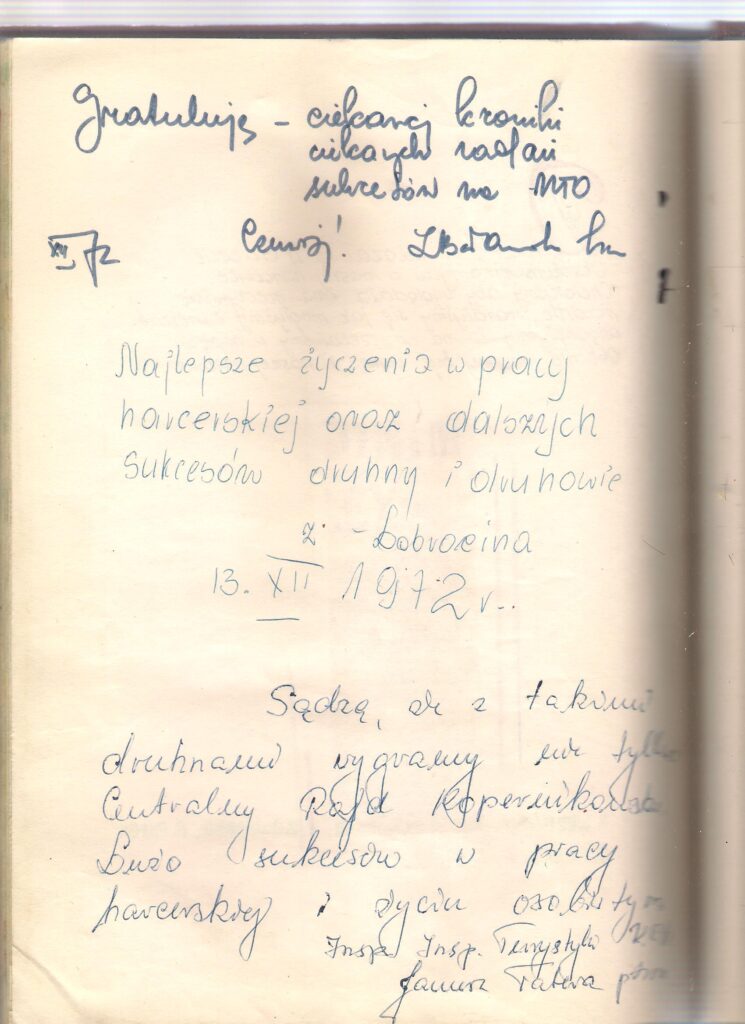 Gratuluję – ciekawej kroniki
ciekawych zadań
sukcesów na MTO
XII 72 Czuwaj!
Najlepsze życzenia w pracy
harcerskiej oraz dalszych
sukcesów druhny i druhowie
z - Dobrocina
13. XII 1972 r..
Sądzę, że z takimi
druhnami wygramy nie tylko
Centralny Rajd Kopernikowski
Dużo sukcesów w pracy
harcerskiej i życiu osobistym
Insp. Turystyki
Janusz